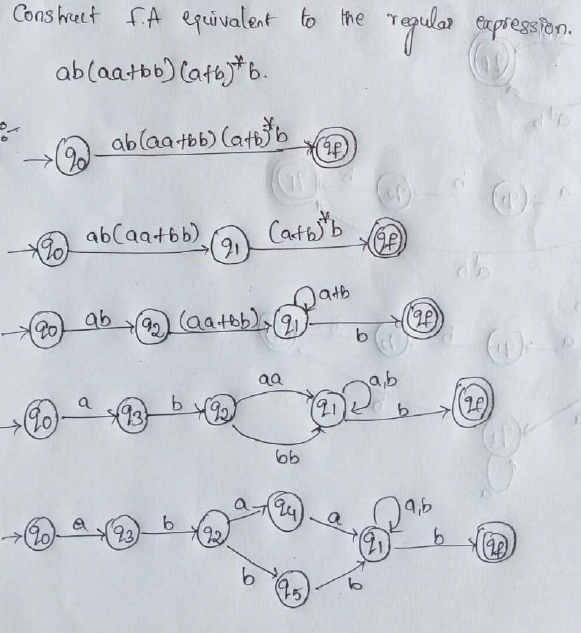 Construct F.A equivalent to the regular expression.
ab(aa+bb)(a+b)*b.
:-
q0 ab(aa+bb)(a+b)*b qf
q0 ab(aa+bb) q1 (a+b)*b qf
q0 ab q2 (aa+bb) q1 a+b b qf
q0 a q3 b q2 aa bb q1 a,b b qf
q0 a q3 b q2 a q4 a b q5 b q1 a,b b qf